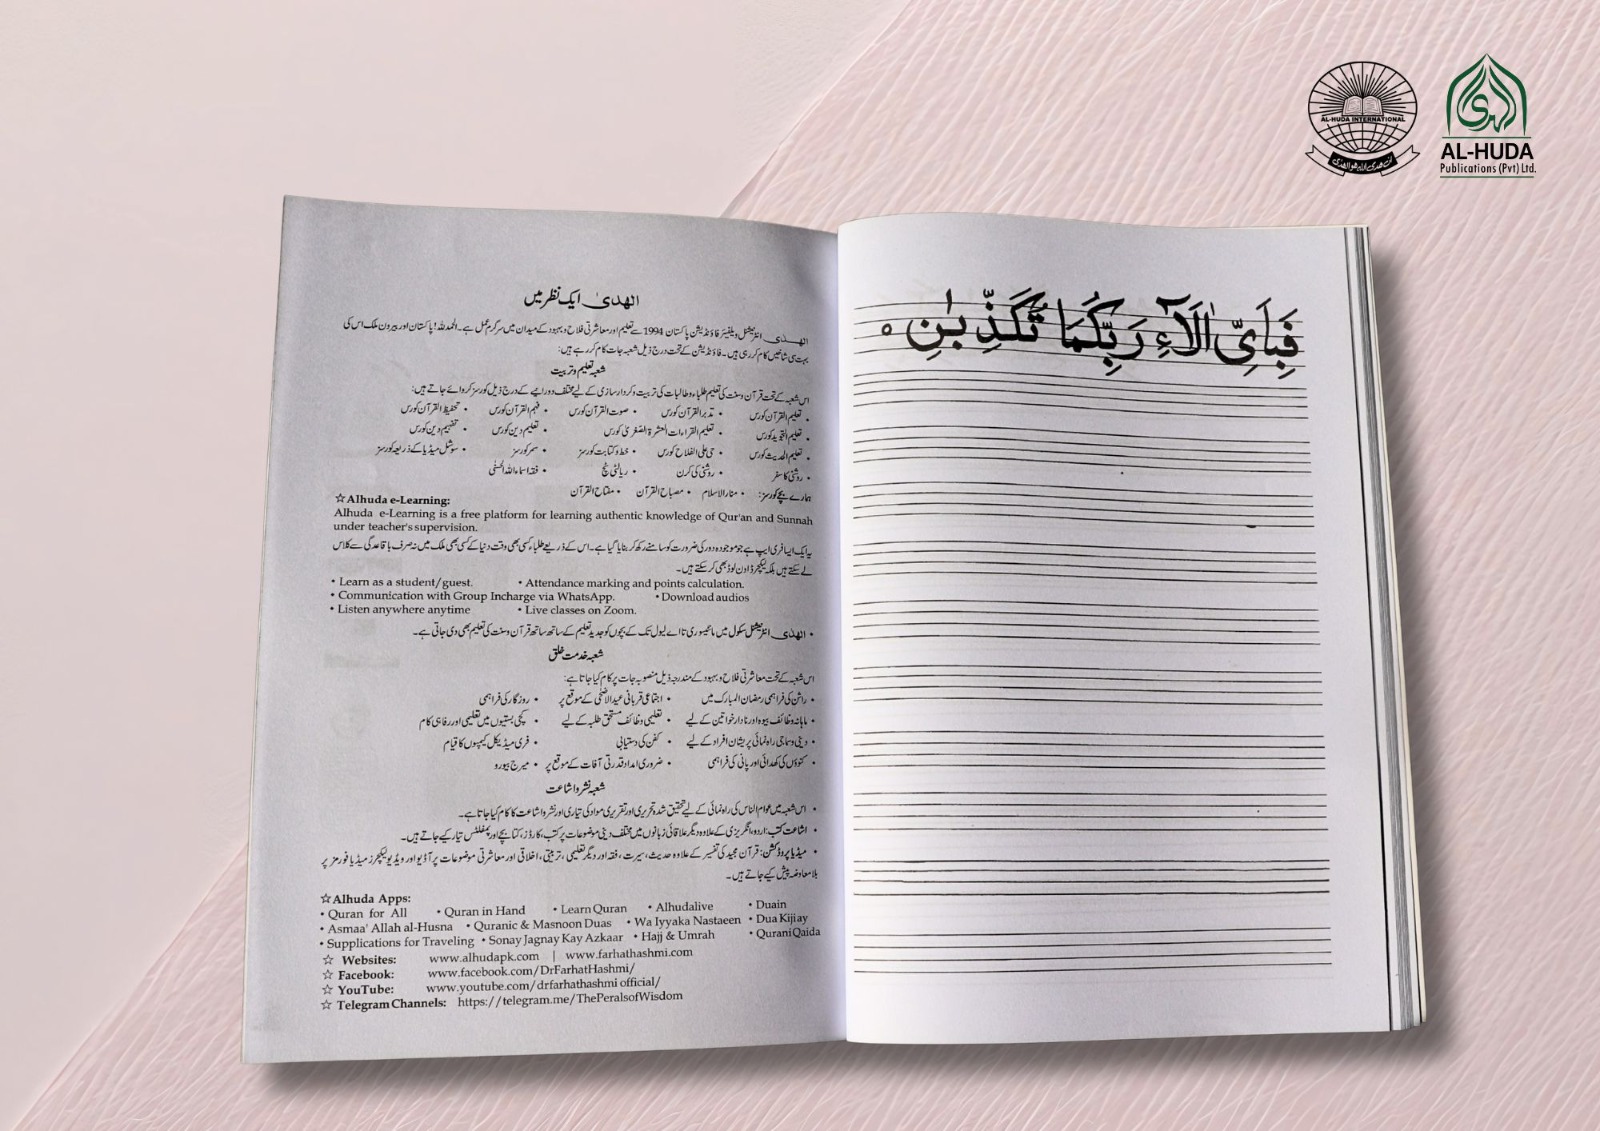 AL-HUDA INTERNATIONAL
AL-HUDA
Publications (Pvt) Ltd.
الهدیٰ ایک نظر میں
الهدیٰ انٹرنیشنل ویلفیئر فاؤنڈیشن پاکستان 1994 سے تعلیم اور معاشرتی فلاح و بہبود کے میدان میں سرگرم عمل ہے۔ الحمدللہ! پاکستان اور بیرون ملک اس کی
بہت سی شاخیں کام کر رہی ہیں۔ فاؤنڈیشن کے تحت درج ذیل شعبہ جات کام کر رہے ہیں:
شعبہ تعلیم و تربیت
اس شعبہ کے تحت قرآن و سنت کی تعلیم طلباء و طالبات کی تربیت و کردار سازی کے لیے مختلف دورانیے کے درج ذیل کورسز کروائے جاتے ہیں:
• تعلیم القرآن کورس • تدبر القرآن کورس • صوت القرآن کورس • فہم القرآن کورس • تحفیظ القرآن کورس
• تعلیم التجوید کورس • تعلیم القراءات العشرۃ الصغریٰ کورس • تعلیم دین کورس • تفہیم دین کورس
• تعلیم الحدیث کورس • حی علی الفلاح کورس • خط و کتابت کورسز • سمر کورسز • سوشل میڈیا کے ذریعہ کورسز
• روشنی کا سفر • روشنی کی کرن • ریالٹی ٹچ • فقہ اسماء اللہ الحسنٰی
ہمارے بچے کورسز: • منار الاسلام • مصباح القرآن • مفتاح القرآن
☆Alhuda e-Learning:
Alhuda e-Learning is a free platform for learning authentic knowledge of Qur'an and Sunnah
under teacher's supervision.
یہ ایک ایسا فری ایپ ہے جو موجودہ دور کی ضرورت کو سامنے رکھ کر بنایا گیا ہے۔ اس کے ذریعے طلباء کسی بھی وقت دنیا کے کسی بھی ملک میں نہ صرف باقاعدگی سے کلاس
لے سکتے ہیں بلکہ لیکچرز ڈاؤن لوڈ بھی کر سکتے ہیں۔
• Learn as a student/guest. • Attendance marking and points calculation.
• Communication with Group Incharge via WhatsApp. • Download audios
• Listen anywhere anytime • Live classes on Zoom.
• الهدیٰ انٹرنیشنل سکول میں مانٹیسوری تا اے لیول تک کے بچوں کو جدید تعلیم کے ساتھ ساتھ قرآن و سنت کی تعلیم بھی دی جاتی ہے۔
شعبہ خدمت خلق
اس شعبہ کے تحت معاشرتی فلاح و بہبود کے مندرجہ ذیل منصوبہ جات پر کام کیا جاتا ہے:
• راشن کی فراہمی رمضان المبارک میں • اجتماعی قربانی عید الاضحٰی کے موقع پر • روزگار کی فراہمی
• ماہانہ وظائف بیوہ اور نادار خواتین کے لیے • تعلیمی وظائف مستحق طلبہ کے لیے • کچی بستیوں میں تعلیمی اور رفاہی کام
• دینی و سماجی راہ نمائی پریشان افراد کے لیے • کفن کی دستیابی • فری میڈیکل کیمپوں کا قیام
• کنوؤں کی کھدائی اور پانی کی فراہمی • ضروری امداد قدرتی آفات کے موقع پر • میرج بیورو
شعبہ نشر و اشاعت
• اس شعبہ میں عوام الناس کی راہ نمائی کے لیے تحقیق شدہ تحریری اور تقریری مواد کی تیاری اور نشر و اشاعت کا کام کیا جاتا ہے۔
• اشاعت کتب: اردو، انگریزی کے علاوہ دیگر علاقائی زبانوں میں مختلف دینی موضوعات پر کتب، کارڈز، کتابچے اور پمفلٹس تیار کیے جاتے ہیں۔
• میڈیا پروڈکشن: قرآن مجید کی تفسیر کے علاوہ حدیث، سیرت، فقہ اور دیگر تعلیمی، تربیتی، اخلاقی اور معاشرتی موضوعات پر آڈیو اور ویڈیو لیکچرز میڈیا فورمز پر
بلا معاوضہ پیش کیے جاتے ہیں۔
☆Alhuda Apps:
• Quran for All • Quran in Hand • Learn Quran • Alhudalive • Duain
• Asmaa' Allah al-Husna • Quranic & Masnoon Duas • Wa Iyyaka Nastaeen • Dua Kijiay
• Supplications for Traveling • Sonay Jagnay Kay Azkaar • Hajj & Umrah • Qurani Qaida
☆ Websites: www.alhudapk.com | www.farhathashmi.com
☆ Facebook: www.facebook.com/DrFarhatHashmi/
☆ YouTube: www.youtube.com/drfarhathashmi official/
☆ Telegram Channels: https://telegram.me/ThePeralsofWisdom
فَبِاَىِّ اٰلَآءِ رَبِّكُمَا تُكَذِّبٰنِ ٥